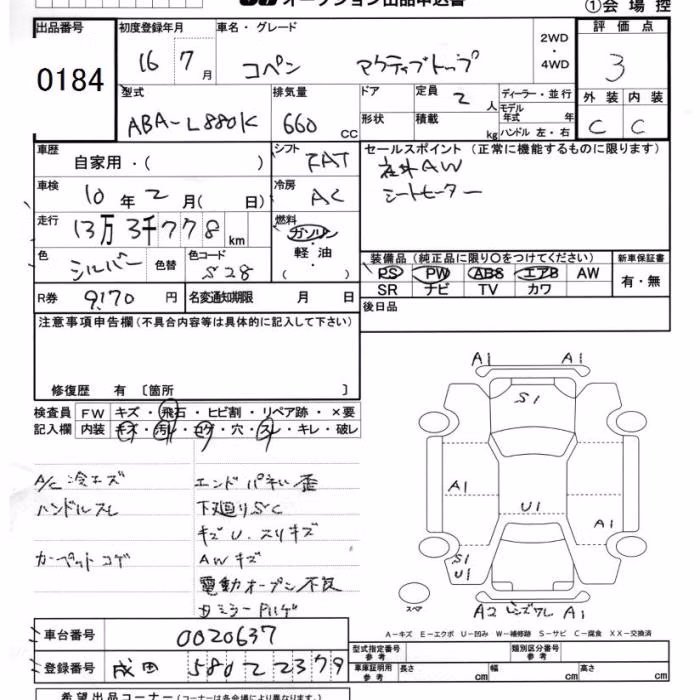 オークション出品申込書
①会場控
出品番号 初度登録年月 車名・グレード 評価点
0184 16 7月 コペン アクティブトップ 2WD・4WD 3
型式 排気量 ドア 定員 2人 ディーラー・並行 外装 内装
ABA-L880K 660cc 形状 積載 kg モデル年式 年 C C
ハンドル 左・右
車歴 自家用・( ) シフト FAT セールスポイント (正常に機能するものに限ります)
社外AW
シートヒーター
車検 10年2月(日) 冷房 AC
走行 13万3千778km 燃料 ガソリン・軽油・( )
色 シルバー 色替 色コード S28
装備品 (純正品に限り○をつけてください) 新車保証書
PS PW ABS エアB AW 有・無
SR ナビ TV カワ
R券 9,170円 名変通知期限 月 日 後日品
注意事項申告欄 (不具合内容等は具体的に記入して下さい)
修復歴 有 〔箇所 〕
検査員記入欄 FW キズ・飛石・ヒビ割・リペア跡・×要
内装 キズ・汚れ・コゲ・穴・スレ・キレ・破レ
A/C冷エズ エンドパネル歪
ハンドルスレ 下廻りS/C
キズU.スリキズ
カーペットコゲ AWキズ
電動オープン不良
ミラーハゲ
A1 A1
S1
A1
U1
A1
S1
U1
スペア
A2 レンズワレ A1
A-キズ E-エクボ U-凹み W-補修跡 S-サビ C-腐食 XX-交換済
車台番号 0020637
型式指定番号 参考 類別区分番号 参考
登録番号 成田 580 2 2379
車庫証明用 参考 長さ cm 幅 cm 高さ cm
希望出品コーナー (コーナーは各会場により異なります。)